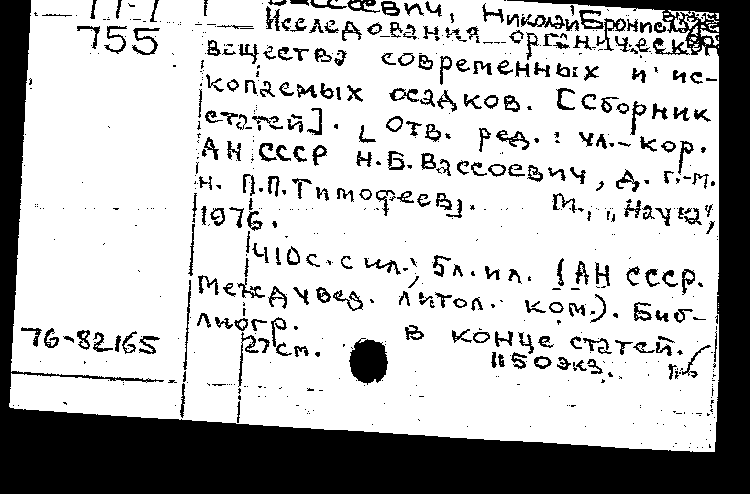 Вассоевич, Николай Брониславович
755
Исследования органического
вещества современных и ис-
копаемых осадков. [Сборник
статей]. [Отв. ред.: чл.-кор.
АН СССР Н.Б. Вассоевич, д. г.-м.
н. П.П. Тимофеев]. М., „Наука",
1976.
410 с. с ил.; 5 л. ил. (АН СССР.
Междувед. литол. ком.). Биб-
лиогр. в конце статей.
76-82165
27 см. 1150 экз.